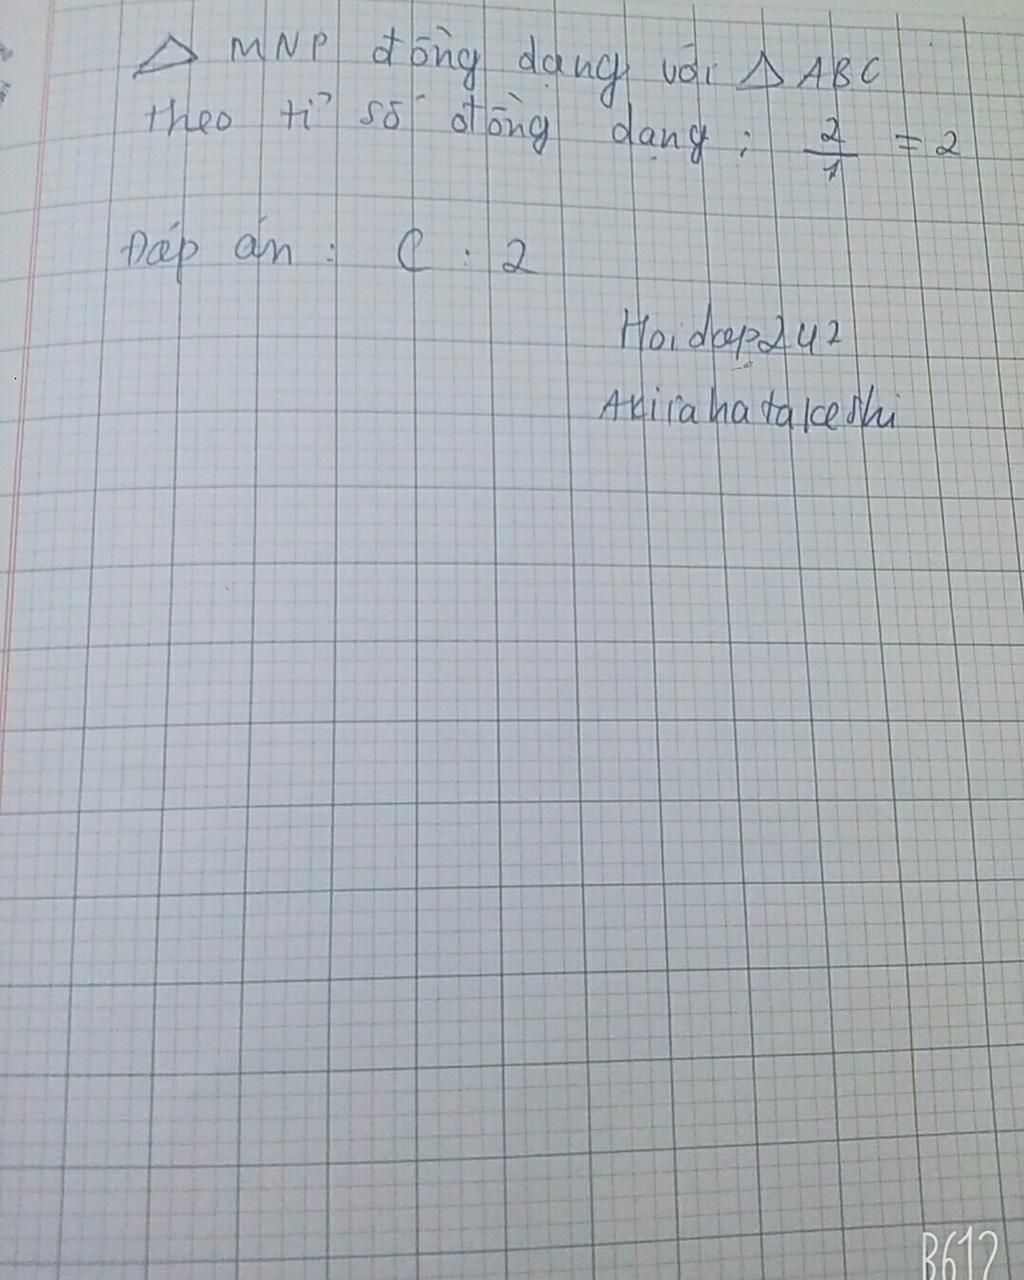 Δ MNP đồng dạng với Δ ABC
theo tỉ số đồng dạng : 2/1 = 2
Đáp án : C : 2
Hoidap247
Akirahatakeshi
B612